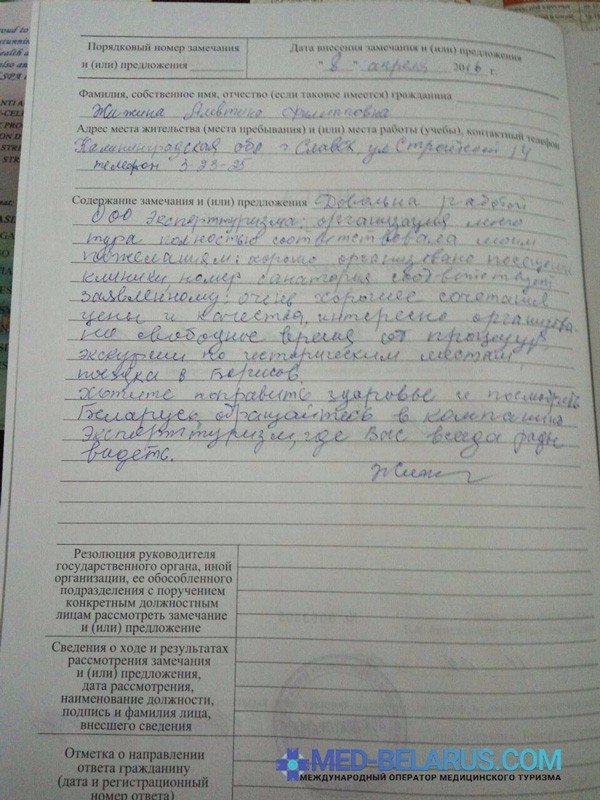 Порядковый номер замечания
и (или) предложения
Дата внесения замечания и (или) предложения
"8" апреля 2016 г.
Фамилия, собственное имя, отчество (если таковое имеется) гражданина
Жижина Алевтина Филипповна
Адрес места жительства (места пребывания) и (или) места работы (учебы), контактный телефон
Калининградская обл г Славск ул Строителей 14
телефон 3-23-25
Содержание замечания и (или) предложения Довольна работой
ООО Экспорттуризма: организация моего
тура полностью соответствовала моим
пожеланиям: хорошо организовано посещение
клиники, номер санатория соответствует
заявленному: очень хорошее сочетание
цены и качества, интересно организова-
но свободное время от процедур
экскурсии по историческим местам
поездка в Борисов.
Хотите поправить здоровье и посмотреть
Беларусь, обращайтесь в компанию
Экспорттуризм, где Вас всегда рады
видеть.
Резолюция руководителя
государственного органа, иной
организации, ее обособленного
подразделения с поручением
конкретным должностным
лицам рассмотреть замечание
и (или) предложение
Сведения о ходе и результатах
рассмотрения замечания
и (или) предложения,
дата рассмотрения,
наименование должности,
подпись и фамилия лица,
внесшего сведения
Отметка о направлении
ответа гражданину
(дата и регистрационный
номер ответа)
MED-BELARUS.COM
МЕЖДУНАРОДНЫЙ ОПЕРАТОР МЕДИЦИНСКОГО ТУРИЗМА